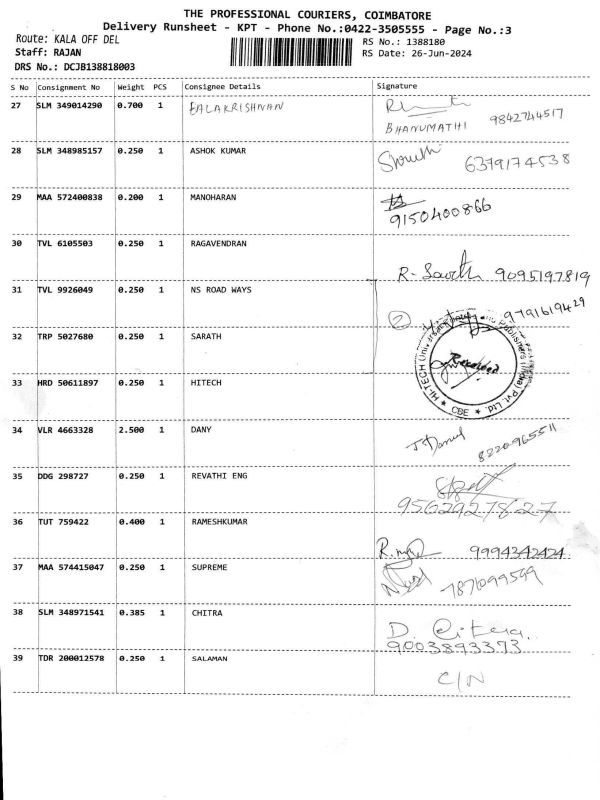 THE PROFESSIONAL COURIERS, COIMBATORE
Delivery Runsheet - KPT - Phone No.:0422-3505555 - Page No.:3
Route: KALA OFF DEL
RS No.: 1388180
Staff: RAJAN
RS Date: 26-Jun-2024
DRS No.: DCJB138818003
S No Consignment No Weight PCS Consignee Details Signature
27 SLM 349014290 0.700 1 BALAKRISHNAN
BHANUMATHI 9842744517
28 SLM 348985157 0.250 1 ASHOK KUMAR
6379174538
29 MAA 572400838 0.200 1 MANOHARAN
9150400866
30 TVL 6105503 0.250 1 RAGAVENDRAN
R- 9095197819
31 TVL 9926049 0.250 1 NS ROAD WAYS
② 9791619429
32 TRP 5027680 0.250 1 SARATH
33 HRD 50611897 0.250 1 HITECH
Received
HI-TECH Publishers (India) Pvt. Ltd. ★ CBE ★
34 VLR 4663328 2.500 1 DANY
J Daniel 8220965511
35 DDG 298727 0.250 1 REVATHI ENG
36 TUT 759422 0.400 1 RAMESHKUMAR
9994342424
37 MAA 574415047 0.250 1 SUPREME
7871099599
38 SLM 348971541 0.385 1 CHITRA
D. Citra
9003893373
39 TDR 200012578 0.250 1 SALAMAN
C/N